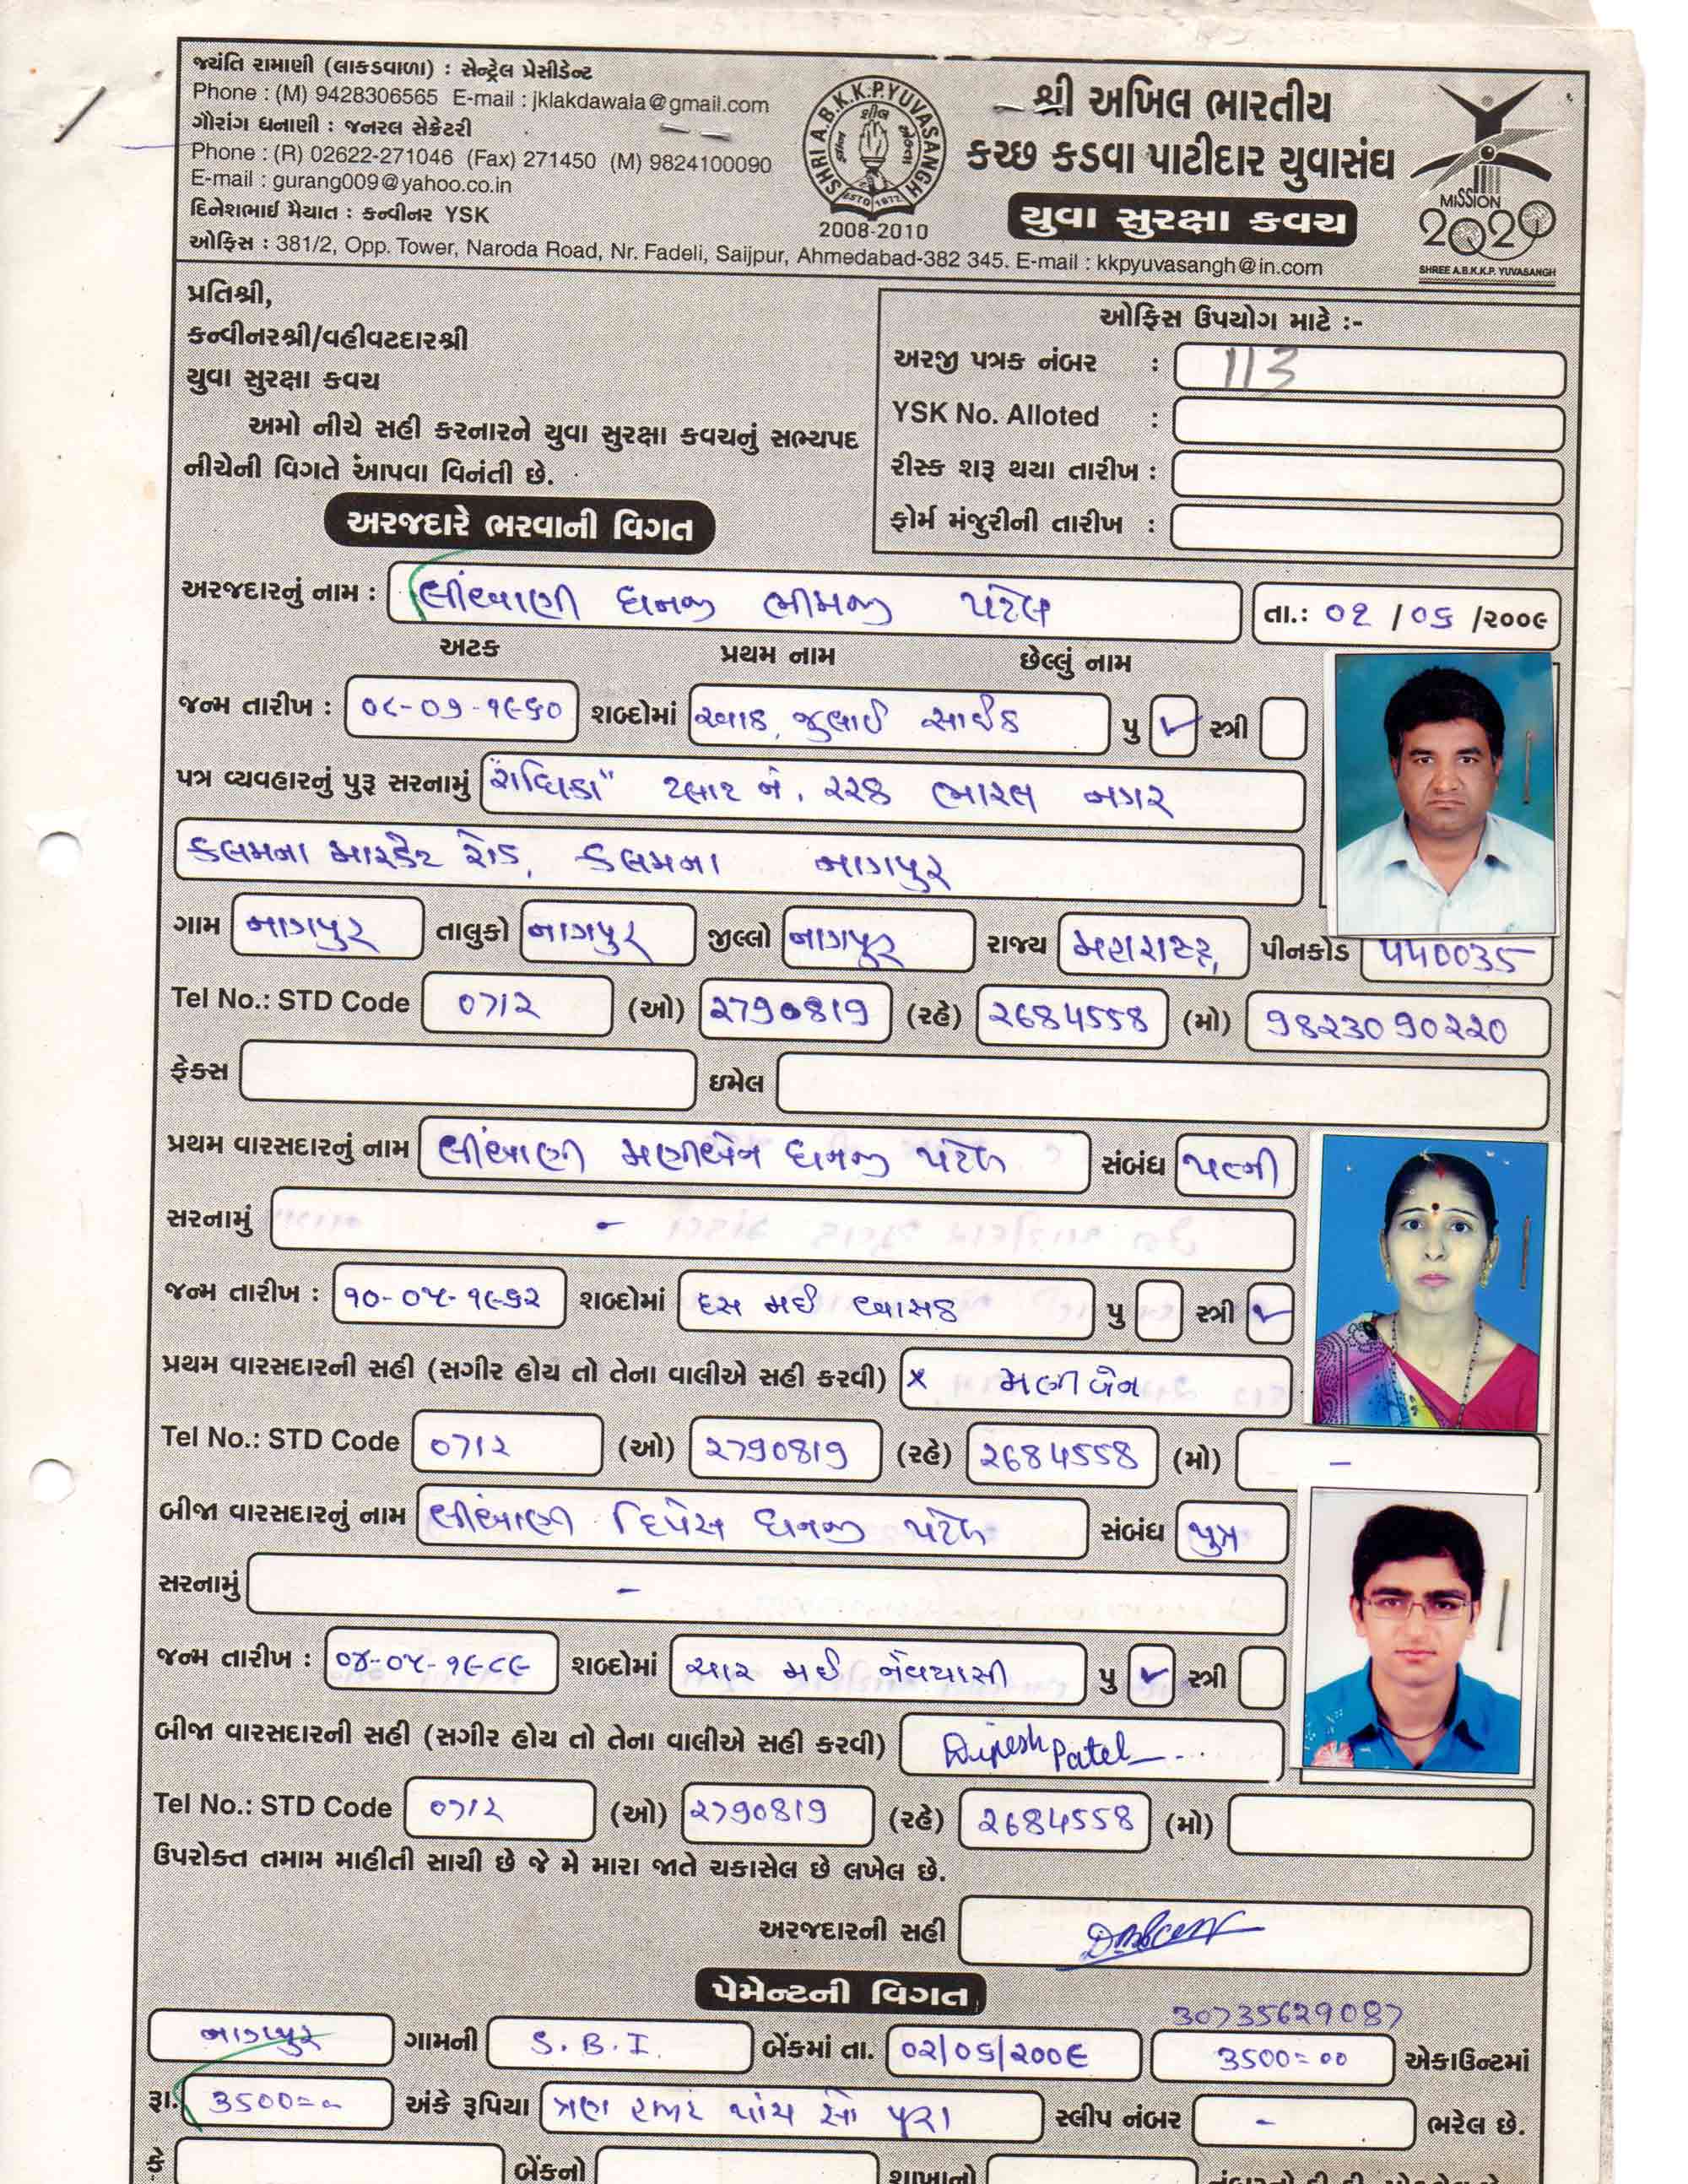 જયંતિ રામાણી (લાકડવાળા) : સેન્ટ્રેલ પ્રેસીડેન્ટ
Phone : (M) 9428306565 E-mail : jklakdawala@gmail.com
ગૌરાંગ ધનાણી : જનરલ સેક્રેટરી
Phone : (R) 02622-271046 (Fax) 271450 (M) 9824100090
E-mail : gurang009@yahoo.co.in
દિનેશભાઈ મૈયાત : કન્વીનર YSK
ઓફિસ : 381/2, Opp. Tower, Naroda Road, Nr. Fadeli, Saijpur, Ahmedabad-382 345. E-mail : kkpyuvasangh@in.com
SHRI A.B.K.K.P.YUVASANGH
શીલ
ESTD 1977
2008-2010
શ્રી અખિલ ભારતીય
કચ્છ કડવા પાટીદાર યુવાસંઘ
યુવા સુરક્ષા કવચ
MISSION
2020
SHREE A.B.K.K.P. YUVASANGH
પ્રતિશ્રી,
કન્વીનરશ્રી/વહીવટદારશ્રી
યુવા સુરક્ષા કવચ
અમો નીચે સહી કરનારને યુવા સુરક્ષા કવચનું સભ્યપદ
નીચેની વિગતે આપવા વિનંતી છે.
ઓફિસ ઉપયોગ માટે :-
અરજી પત્રક નંબર : 113
YSK No. Alloted :
રીસ્ક શરૂ થયા તારીખ :
ફોર્મ મંજુરીની તારીખ :
અરજદારે ભરવાની વિગત
અરજદારનું નામ : લીંબાણી ધનજી ભીમજી પટેલ તા.: ૦૨ / ૦૬ /૨૦૦૯
અટક પ્રથમ નામ છેલ્લું નામ
જન્મ તારીખ : ૦૮-૦૭-૧૯૬૦ શબ્દોમાં આઠ, જુલાઈ સાઈઠ પુ ✓ સ્ત્રી
પત્ર વ્યવહારનું પુરૂ સરનામું "રાધિકા" પ્લાટ નં. ૨૨૪ ભારત નગર
કલમના મારકેટ રોડ, કલમના નાગપુર
ગામ નાગપુર તાલુકો નાગપુર જીલ્લો નાગપુર રાજ્ય મહારાષ્ટ્ર, પીનકોડ ૪૪0035
Tel No.: STD Code 0712 (ઓ) 2790819 (રહે) 2684558 (મો) 9823090220
ફેક્સ ઇમેલ
પ્રથમ વારસદારનું નામ લીંબાણી મણીબેન ધનજી પટેલ સંબંધ પત્ની
સરનામું -
જન્મ તારીખ : ૧૦-૦૫-૧૯૬૨ શબ્દોમાં દસ મઈ બાસઠ પુ સ્ત્રી ✓
પ્રથમ વારસદારની સહી (સગીર હોય તો તેના વાલીએ સહી કરવી) x મણીબેન
Tel No.: STD Code 0712 (ઓ) 2790819 (રહે) 2684558 (મો) -
બીજા વારસદારનું નામ લીંબાણી દિપેસ ધનજી પટેલ સંબંધ પુત્ર
સરનામું -
જન્મ તારીખ : ૦૪-૦૫-૧૯૮૯ શબ્દોમાં ચાર મઈ નેવયાસી પુ ✓ સ્ત્રી
બીજા વારસદારની સહી (સગીર હોય તો તેના વાલીએ સહી કરવી) Dipesh Patel
Tel No.: STD Code 0712 (ઓ) 2790819 (રહે) 2684558 (મો)
ઉપરોક્ત તમામ માહીતી સાચી છે જે મે મારા જાતે ચકાસેલ છે લખેલ છે.
અરજદારની સહી
પેમેન્ટની વિગત
30735629087
નાગપુર ગામની S.B.I. બેંકમાં તા. ૦૨/૦૬/૨૦૦૯ 3500=00 એકાઉન્ટમાં
રૂા. 3500=00 અંકે રૂપિયા ત્રણ હજાર પાંચ સો પૂરા સ્લીપ નંબર - ભરેલ છે.
કે બેંકનો શાખાનો